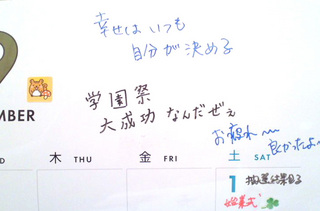 幸せは いつも
自分が 決める
学園祭
大成功 なんだぜぇ
お疲れ〜
良かったよ〜
MBER
木 THU
金 FRI
土 SAT
1
始業式